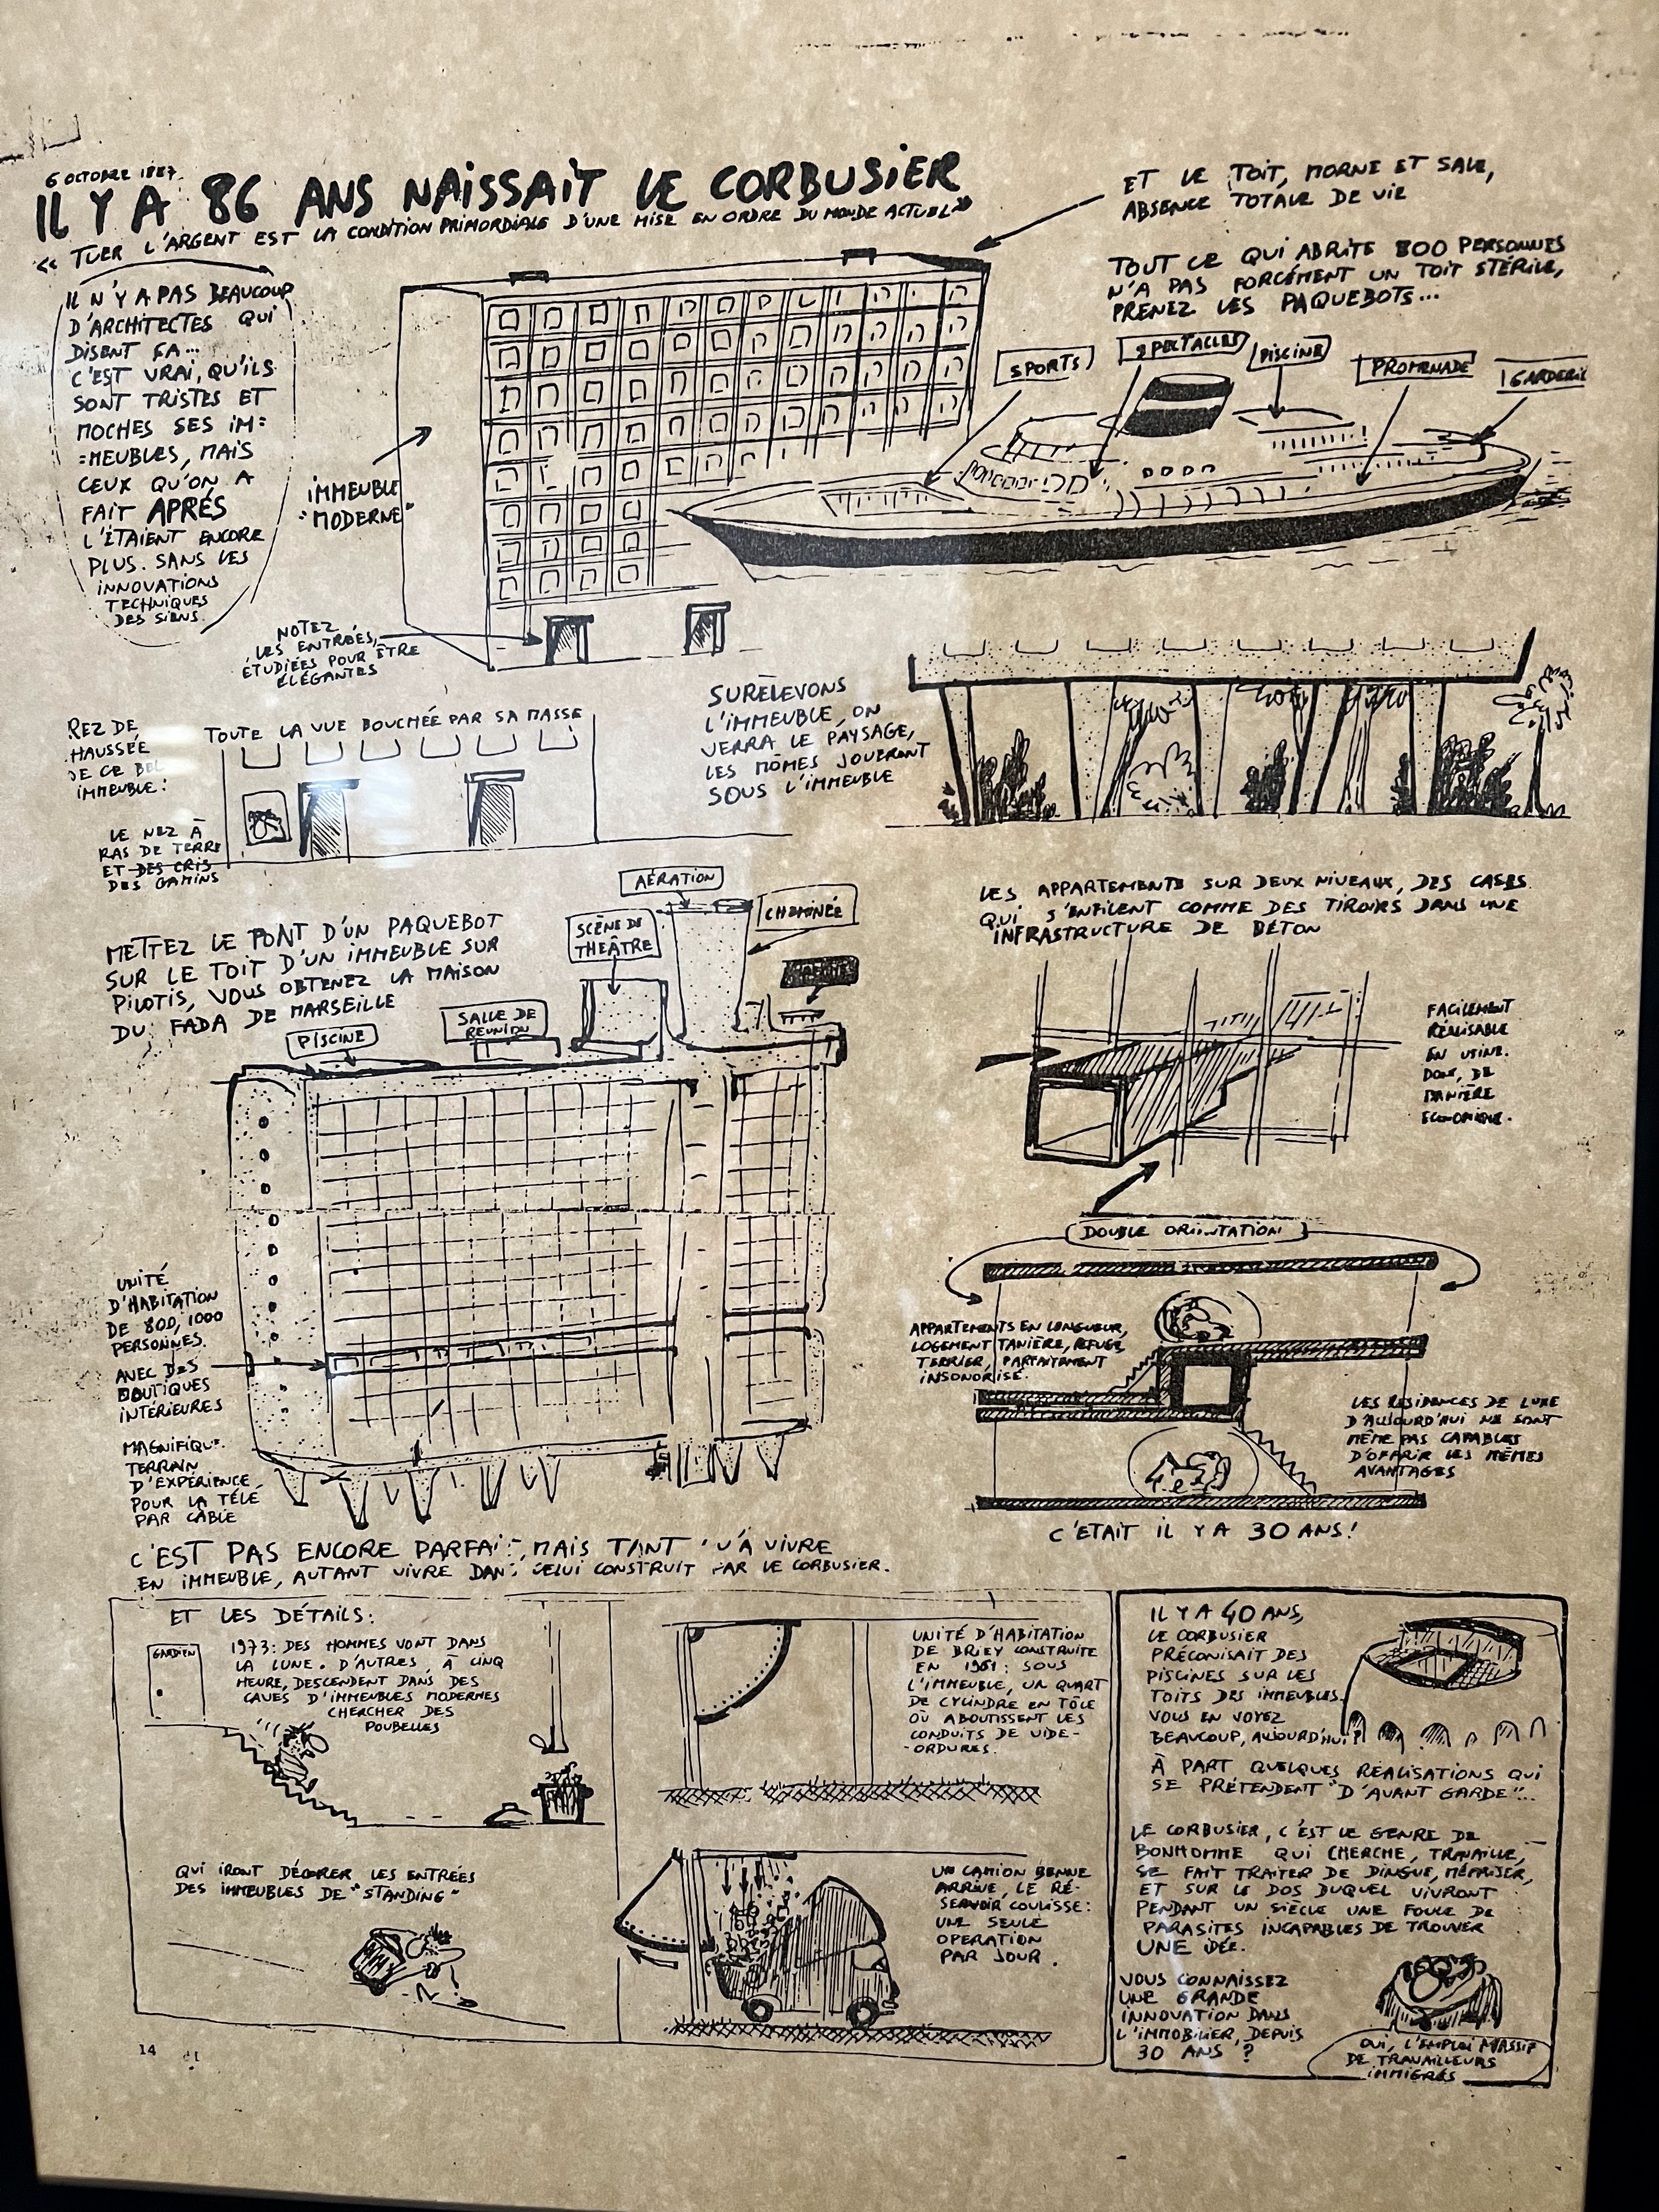 6 OCTOBRE 1887.
IL Y A 86 ANS NAISSAIT LE CORBUSIER
« TUER L'ARGENT EST LA CONDITION PRIMORDIALE D'UNE MISE EN ORDRE DU MONDE ACTUEL »
IL N'Y A PAS BEAUCOUP
D'ARCHITECTES QUI
DISENT ÇA...
C'EST VRAI, QU'ILS
SONT TRISTES ET
MOCHES SES IM=
=MEUBLES, MAIS
CEUX QU'ON A
FAIT APRÈS
L'ÉTAIENT ENCORE
PLUS. SANS LES
INNOVATIONS
TECHNIQUES
DES SIENS.
IMMEUBLE
"MODERNE"
NOTEZ
LES ENTRÉES,
ÉTUDIÉES POUR ÊTRE
ÉLÉGANTES
ET LE TOIT, MORNE ET SALE,
ABSENCE TOTALE DE VIE
TOUT CE QUI ABRITE 800 PERSONNES
N'A PAS FORCÉMENT UN TOIT STÉRILE,
PRENEZ LES PAQUEBOTS...
SPORTS
SPECTACLES
PISCINE
PROMENADE
GARDERIE
REZ DE
HAUSSÉE
DE CE BEL
IMMEUBLE:
TOUTE LA VUE BOUCHÉE PAR SA MASSE
LE NEZ À
RAS DE TERRE
ET DES CRIS
DES GAMINS
SURÉLEVONS
L'IMMEUBLE, ON
VERRA LE PAYSAGE,
LES MÔMES JOUERONT
SOUS L'IMMEUBLE
METTEZ LE PONT D'UN PAQUEBOT
SUR LE TOIT D'UN IMMEUBLE SUR
PILOTIS, VOUS OBTENEZ LA MAISON
DU FADA DE MARSEILLE
PISCINE
SALLE DE
REUNION
SCÈNE DE
THEÂTRE
AÉRATION
CHEMINÉE
UNITÉ
D'HABITATION
DE 800, 1000
PERSONNES.
AVEC DES
BOUTIQUES
INTÉRIEURES
MAGNIFIQUE
TERRAIN
D'EXPÉRIENCE
POUR LA TÉLÉ
PAR CÂBLE
LES APPARTEMENTS SUR DEUX NIVEAUX, DES CASES
QUI S'ENFILENT COMME DES TIROIRS DANS UNE
INFRASTRUCTURE DE BÉTON
FACILEMENT
RÉALISABLE
EN USINE.
DONC, DE
MANIÈRE
ECONOMIQUE.
DOUBLE ORIENTATION
APPARTEMENTS EN LONGUEUR,
LOGEMENT TANIÈRE, REFUGE,
TERRIER, PARFAITEMENT
INSONORISÉ.
LES RESIDENCES DE LUXE
D'AUJOURD'HUI NE SONT
MÊME PAS CAPABLES
D'OFFRIR LES MÊMES
AVANTAGES
C'ETAIT IL Y A 30 ANS!
C'EST PAS ENCORE PARFAIT, MAIS TANT QU'À VIVRE
EN IMMEUBLE, AUTANT VIVRE DANS CELUI CONSTRUIT PAR LE CORBUSIER.
ET LES DÉTAILS:
GARDIEN
1973: DES HOMMES VONT DANS
LA LUNE. D'AUTRES, À CINQ
HEURE, DESCENDENT DANS DES
CAVES D'IMMEUBLES MODERNES
CHERCHER DES
POUBELLES
QUI IRONT DÉCORER LES ENTRÉES
DES IMMEUBLES DE "STANDING"
UNITÉ D'HABITATION
DE BRIEY CONSTRUITE
EN 1961: SOUS
L'IMMEUBLE, UN QUART
DE CYLINDRE EN TÔLE
OÙ ABOUTISSENT LES
CONDUITS DE VIDE-
-ORDURES.
UN CAMION BENNE
ARRIVE, LE RÉ-
SERVOIR COULISSE:
UNE SEULE
OPERATION
PAR JOUR.
IL Y A 40 ANS,
LE CORBUSIER
PRÉCONISAIT DES
PISCINES SUR LES
TOITS DES IMMEUBLES.
VOUS EN VOYEZ
BEAUCOUP, AUJOURD'HUI?
À PART QUELQUES RÉALISATIONS QUI
SE PRÉTENDENT "D'AVANT GARDE"...
LE CORBUSIER, C'EST LE GENRE DE
BONHOMME QUI CHERCHE, TRAVAILLE,
SE FAIT TRAITER DE DINGUE, MÉPRISER,
ET SUR LE DOS DUQUEL VIVRONT
PENDANT UN SIÈCLE UNE FOULE DE
PARASITES INCAPABLES DE TROUVER
UNE IDÉE.
VOUS CONNAISSEZ
UNE GRANDE
INNOVATION DANS
L'IMMOBILIER, DEPUIS
30 ANS?
OUI, L'EMPLOI MASSIF
DE TRAVAILLEURS
IMMIGRÉS
14